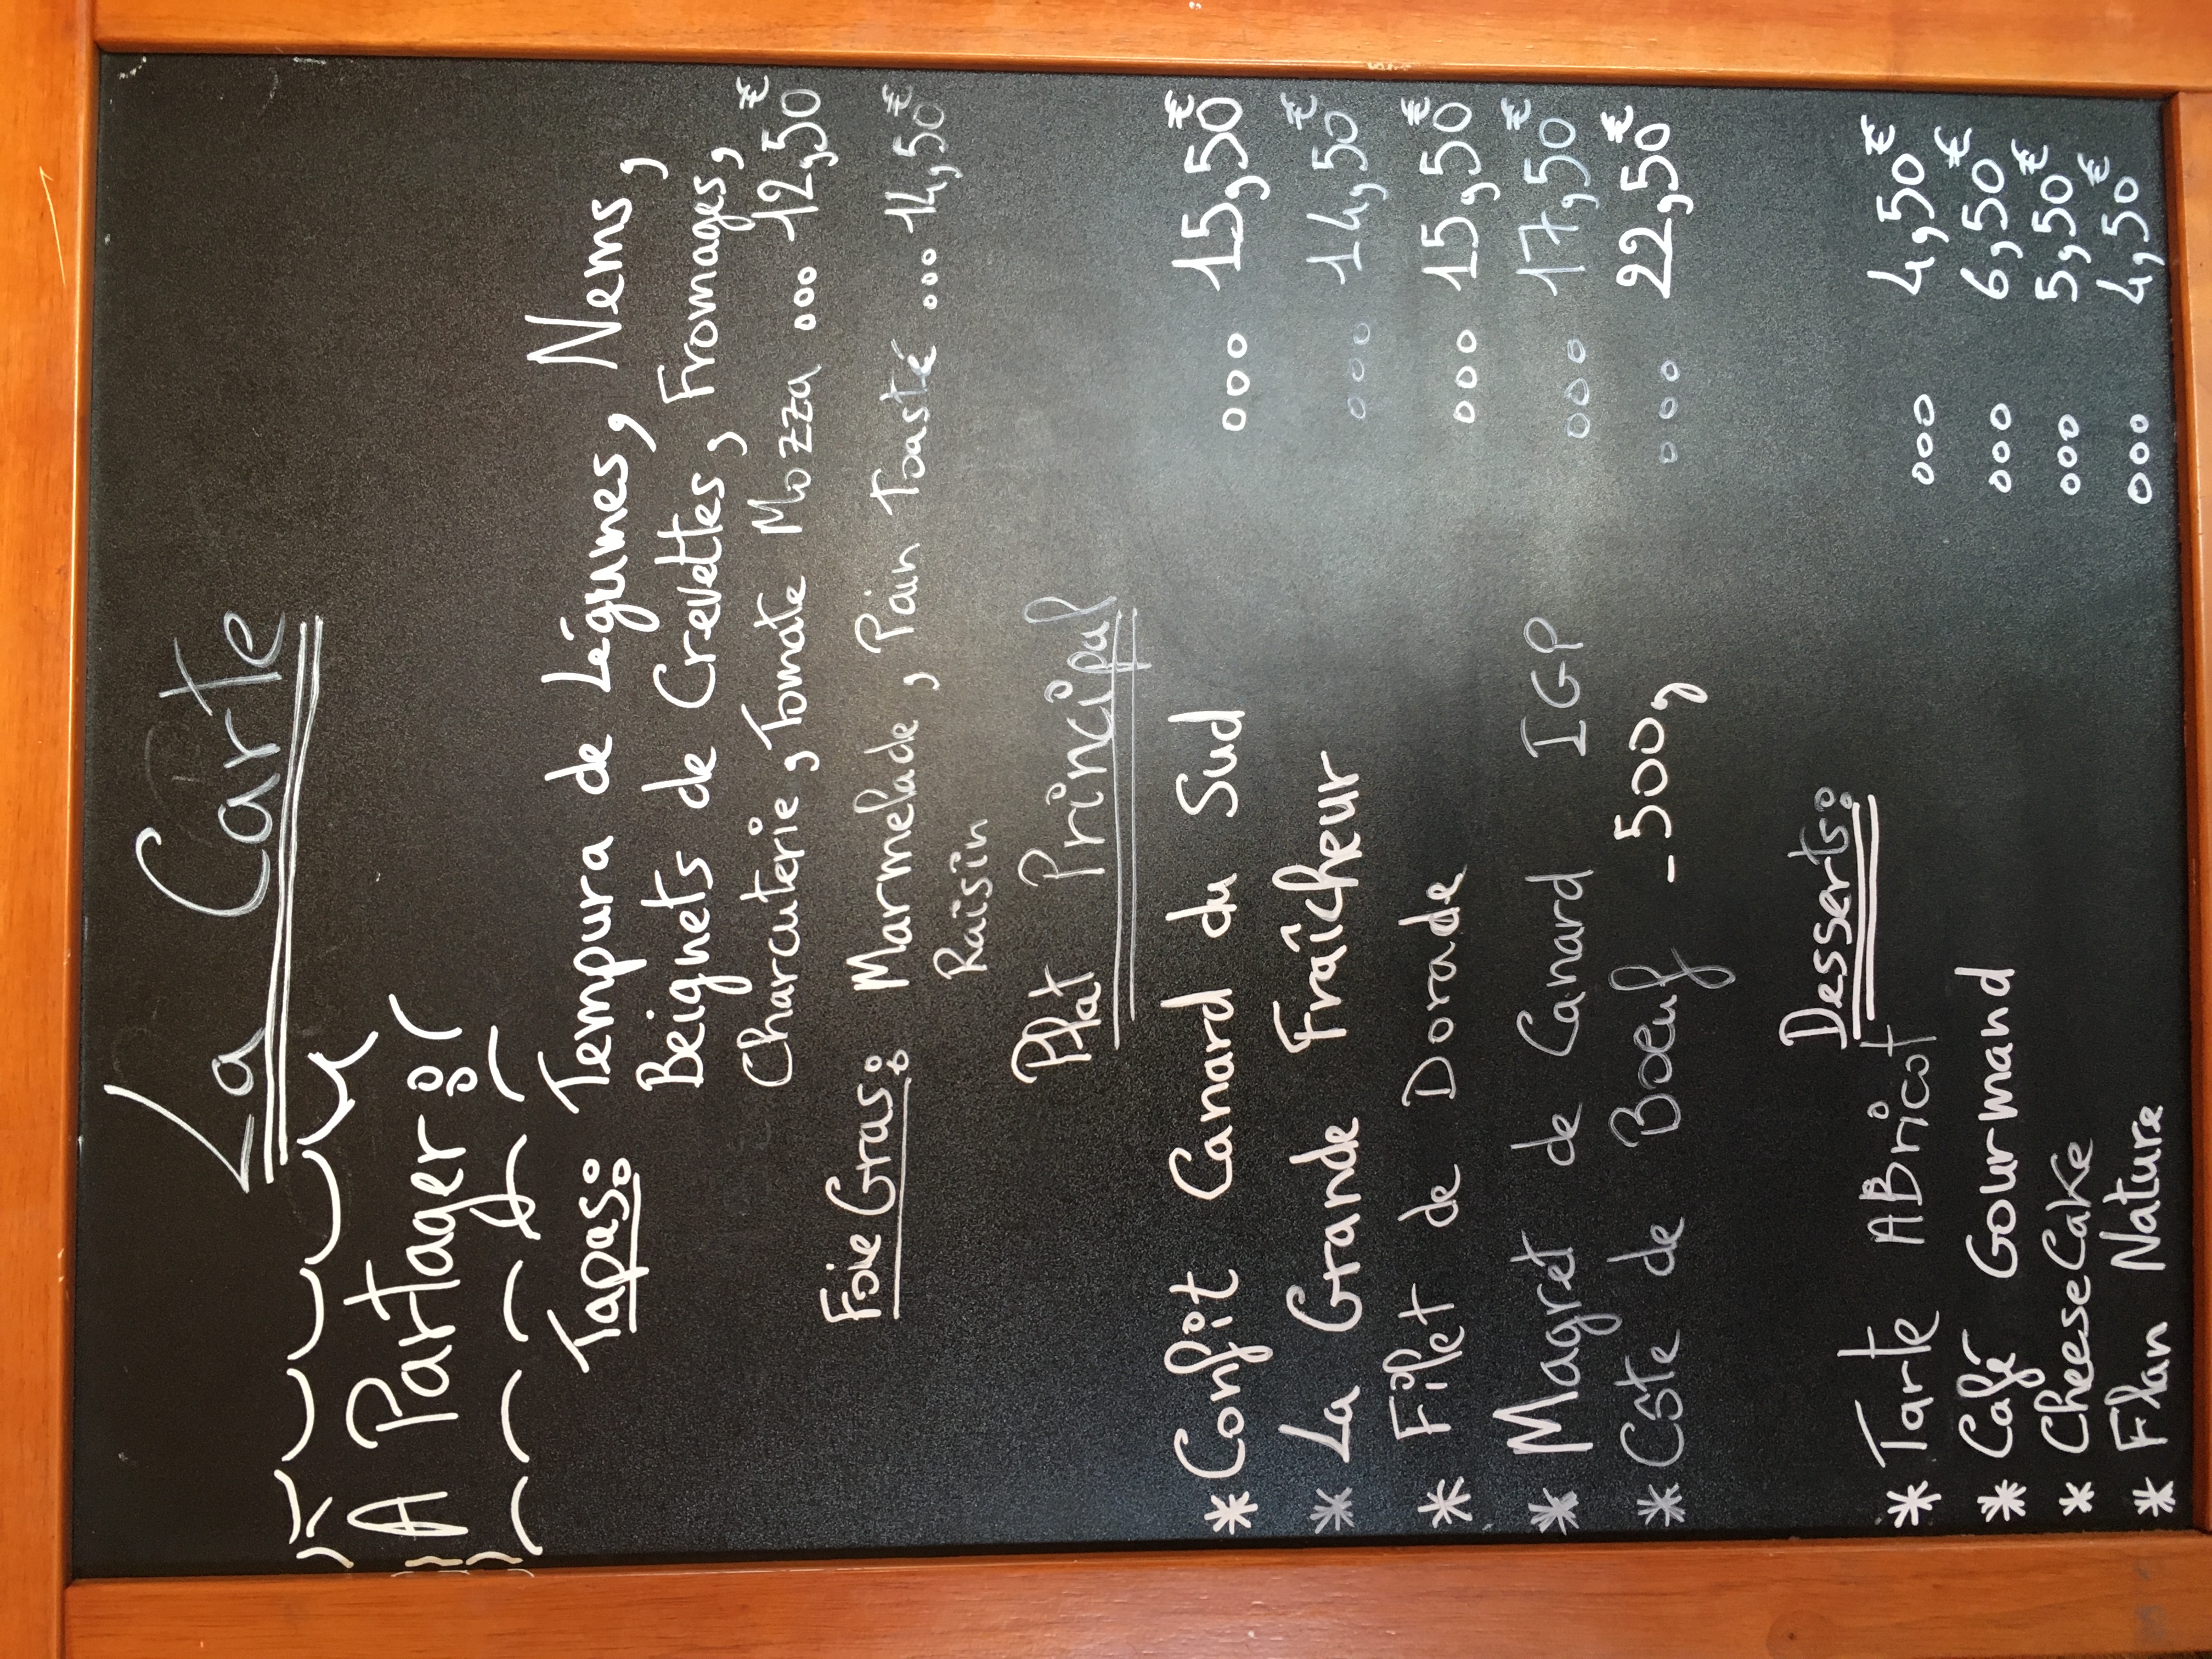 La Carte
A Partager :
Tapas : Tempura de Légumes, Nems,
Beignets de Crevettes, Fromages,
Charcuterie, Tomate Mozza ... 12,50€
Foie Gras : Marmelade, Pain Toasté ... 14,50€
Raisin
Plat Principal
* Confit Canard du Sud ... 15,50€
* La Grande Fraîcheur ... 14,50€
* Filet de Dorade ... 15,50€
* Magret de Canard IGP ... 17,50€
* Côte de Boeuf - 500g ... 22,50€
Desserts :
* Tarte ABricot ... 4,50€
* Café Gourmand ... 6,50€
* CheeseCake ... 5,50€
* Flan Nature ... 4,50€